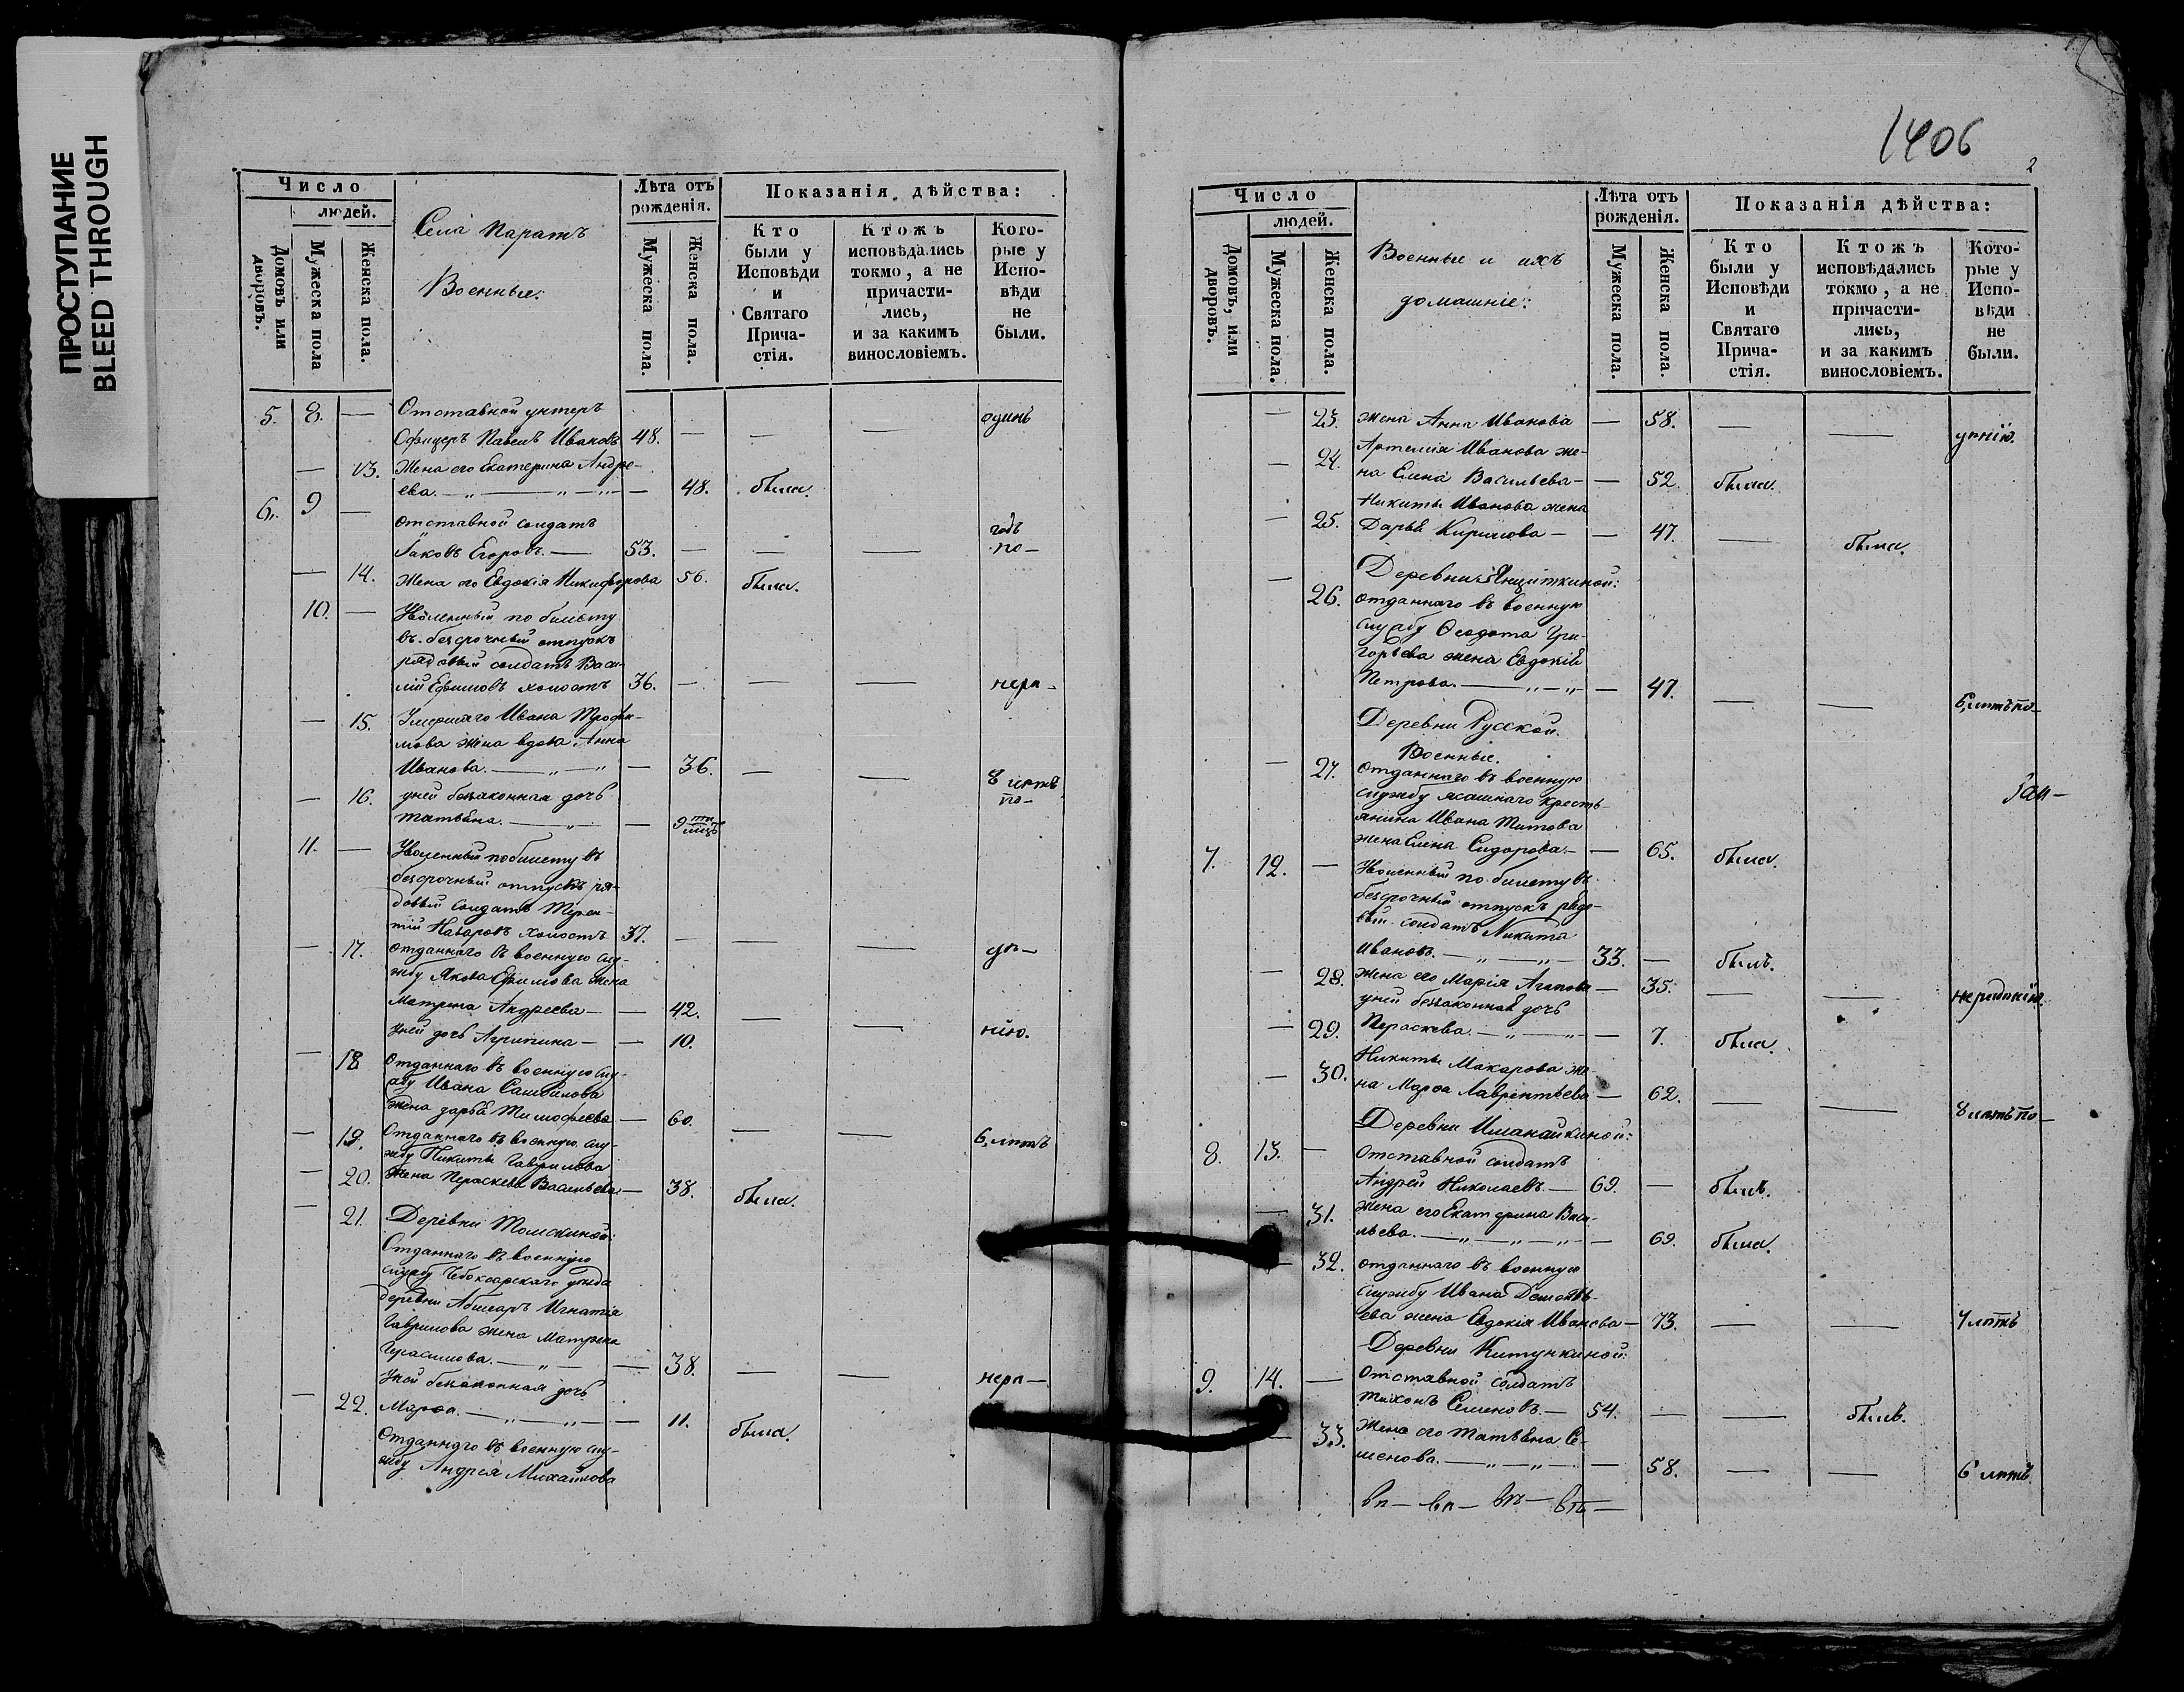 ПРОСТУПАНИЕ
BLEED THROUGH
Число
людей.
Домовъ или дворовъ.
Мужеска пола
Женска пола.
Села Паратъ
Военные:
Лѣта отъ рожденія.
Мужеска пола.
Женска пола.
Показанія дѣйства:
Кто были у Исповѣди и Святаго Прича-стія.
Ктожъ исповѣдались токмо, а не причасти-лись, и за какимъ винословіемъ.
Кото-рые у Испо-вѣди не были.
5. 8. — Отставной унтеръ
Офицеръ Павелъ Ивановъ 48. — — — одинъ
— 13. Жена его Екатерина Андре-
ева. — „ — „ — „ — — 48. была.
6. 9 — отставной солдатъ годъ
Іаковъ Егоровъ. — 53. — — — по-
— 14. Жена его Евдокія Никифорова 56. была.
10. — Уволенный по билету
въ безсрочный отпускъ
рядовый солдатъ Васи-
лій Ефимовъ холостъ 36. — — — нера-
— 15. Умершаго Ивана Трофи-
мова жена вдова Анна
Иванова. — „ — „ — 36. — — 8 лѣтъ
— 16. у ней беззаконная дочь по-
Татьяна. — „ — — 9 ти мцъ
11. — Уволенный по билету въ
безсрочный отпускъ ря-
довый солдатъ Терен-
тій Назаровъ холостъ 37. — — — ую-
— 17. отданнаго въ военную слу-
жбу Якова Ефимова жена
Матрена Андреева — — 42. — —
У ней дочь Агрипина — — 10. нію.
— 18 Отданнаго въ военную слу-
жбу Ивана Самойлова
жена Дарья Тимофеева — 60. — — 6, лѣтъ
— 19. Отданнаго въ военную слу-
жбу Никиты Гаврилова
— 20. жена Пераскева Васильева — 38. была.
— 21. Деревни Толмкиной:
Отданнаго въ военную
службу Чебоксарскаго уѣзда
деревни Абашаръ Игнатія
Гаврилова жена Матрена
Герасимова. — „ — — 38. — — нера-
У ней беззаконная дочь
— 22. Марѳа. — „ — „ — — 11. была.
Отданнаго въ военную слу-
жбу Андрея Михайлова
1406
2
Число
людей.
Домовъ, или дворовъ.
Мужеска пола.
Женска пола.
Военные и ихъ
домашніе:
Лѣта отъ рожденія.
Мужеска пола.
Женска пола.
Показанія дѣйства:
Кто были у Исповѣди и Святаго Прича-стія.
Ктожъ исповѣдались токмо, а не причасти-лись, и за какимъ винословіемъ.
Кото-рые у Испо-вѣди не были.
— 23. жена Анна Иванова — 58. — —
Артемія Иванова же-
— 24. на Елена Васильева — — 52. была.
Никиты Иванова жена
— 25. Дарья Кирилова — — 47. — была.
Деревни
— 26. отданнаго въ военную
службу Ѳеодота Гри-
горьева жена Евдокія
Петрова. — „ — „ — 47. — — 6, лѣтъ по-
Деревни Русской.
Военные.
— 27. Отданнаго въ военную
службу ясашнаго кресть-
янина Ивана Титова
жена Елена Сидорова. — — 65. была.
7. 12. — Уволенный по билету въ
безсрочный отпускъ рядо-
вый солдатъ Никита
Ивановъ. — „ — „ — 33. — былъ.
— 28. жена его Марія Агапова — 35. — — нерадѣнію.
у ней беззаконная дочь
— 29. Пераскева. — „ — „ — — 7. была.
Никиты Макарова же-
— 30. на Марѳа Лаврентьева — 62. — — 8 лѣтъ по-
Деревни Иманайкиной:
8. 13. — Отставной солдатъ
Андрей Николаевъ. — 69. — былъ.
— 31. Жена его Екатерина Васи-
льева. — „ — „ — „ — — 69. была.
— 32. отданнаго въ военную
службу Ивана Дементь-
ева жена Евдокія Иванова — 73. — — 7 лѣтъ
Деревни Китункиной:
9. 14. — Отставной солдатъ
Тихонъ Семеновъ. — 54. — — былъ.
— 33. Жена его Татьяна Се-
менова. — „ — „ — — 58. — — 6 лѣтъ